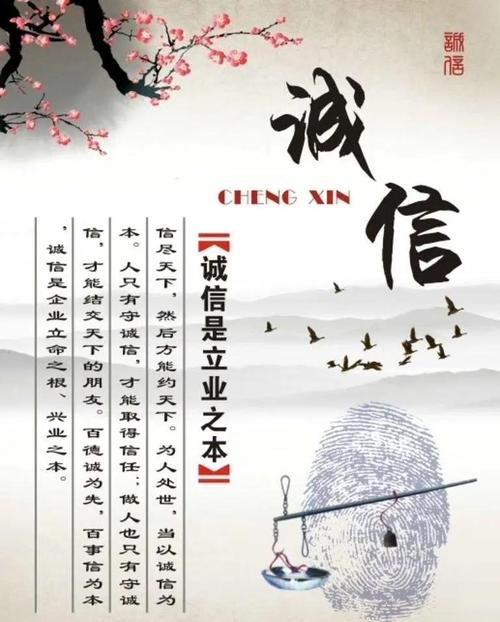 誠信
诚信
CHENG XIN
【诚信是立业之本】
信尽天下，然后方能约天下。为人处世，当以诚信为
本。人只有守诚信，才能取得信任；做人也只有守诚
信，才能结交天下的朋友。百德诚为先，百事信为本
，诚信是企业立命之根、兴业之本。